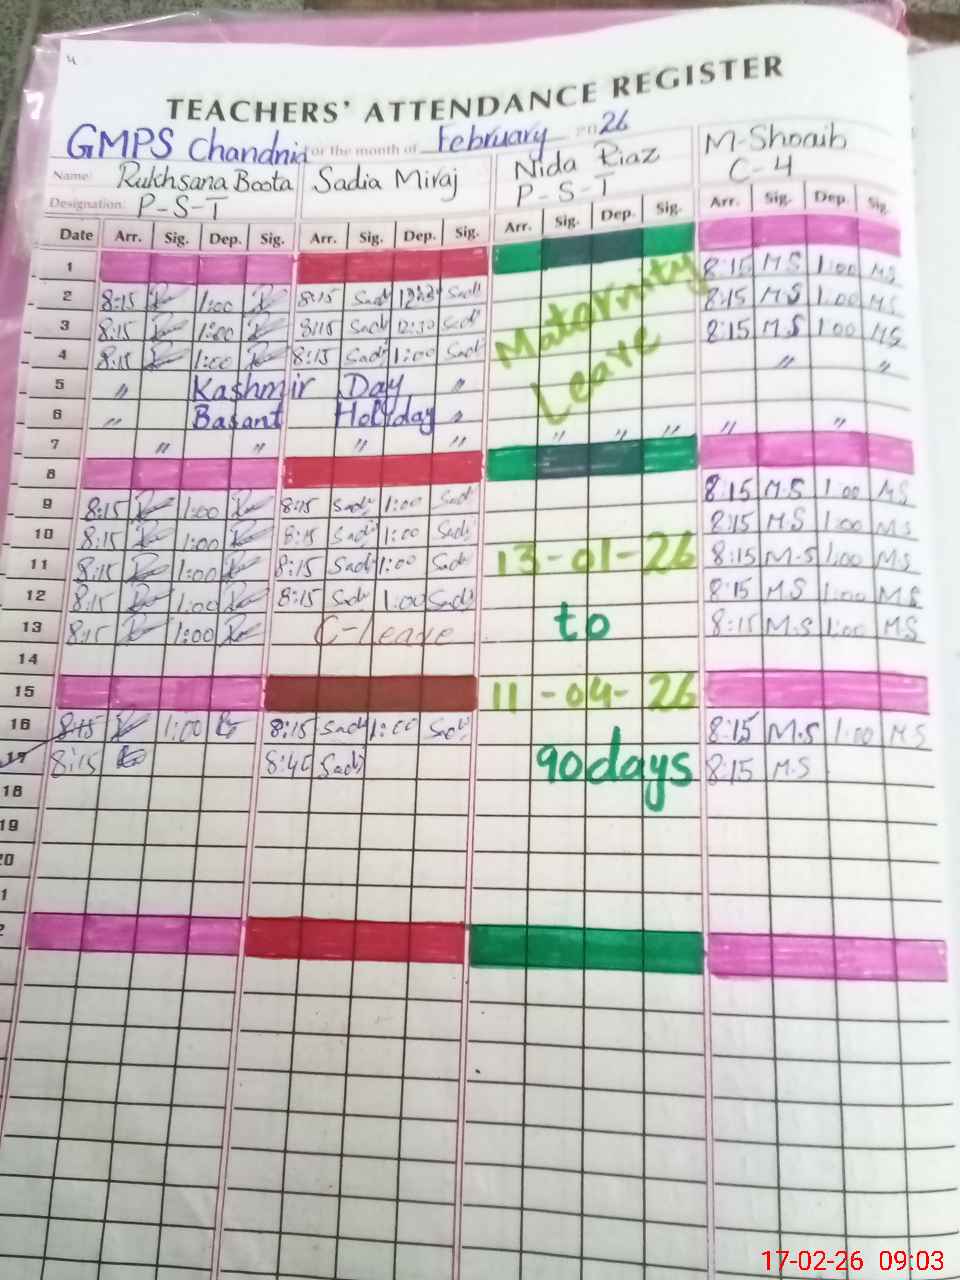 4
TEACHERS' ATTENDANCE REGISTER
GMPS Chandni for the month of February 2026
Name: Rukhsana Boota Sadia Miraj Nida Riaz M-Shoaib
Designation: P-S-T P-S-T C-4
Date Arr. Sig. Dep. Sig. Arr. Sig. Dep. Sig. Arr. Sig. Dep. Sig. Arr. Sig. Dep. Sig.
1
Maternity
Leave
2 8:15 1:00 8:15 Sadi Sadi 8:15 MS 1:00 MS
3 8:15 1:00 8:15 Sadi 12:30 Sadi 8:15 MS 1:00 MS
4 8:15 1:00 8:15 Sadi 1:00 Sadi 8:15 MS 1:00 MS
5 " Kashmir Day " " "
6 " Basant Holiday "
7 " " " " " " " " "
8
9 8:15 1:00 8:15 Sadi 1:00 Sadi 8:15 M.S 1:00 MS
10 8:15 1:00 8:15 Sadi 1:00 Sadi 8:15 MS 1:00 M.S
11 8:15 1:00 8:15 Sadi 1:00 Sadi 13-01-26 8:15 M.S 1:00 M.S
12 8:15 1:00 8:15 Sadi 1:00 Sadi 8:15 MS 1:00 M.S
13 8:15 1:00 C-leave to 8:15 M.S 1:00 MS
14
15 11-04-26
16 8:15 1:00 8:15 Sadi 1:00 Sadi 8:15 M.S 1:00 MS
17 8:15 8:40 Sadi 90days 8:15 M.S
18
19
20
1
2
17-02-26 09:03